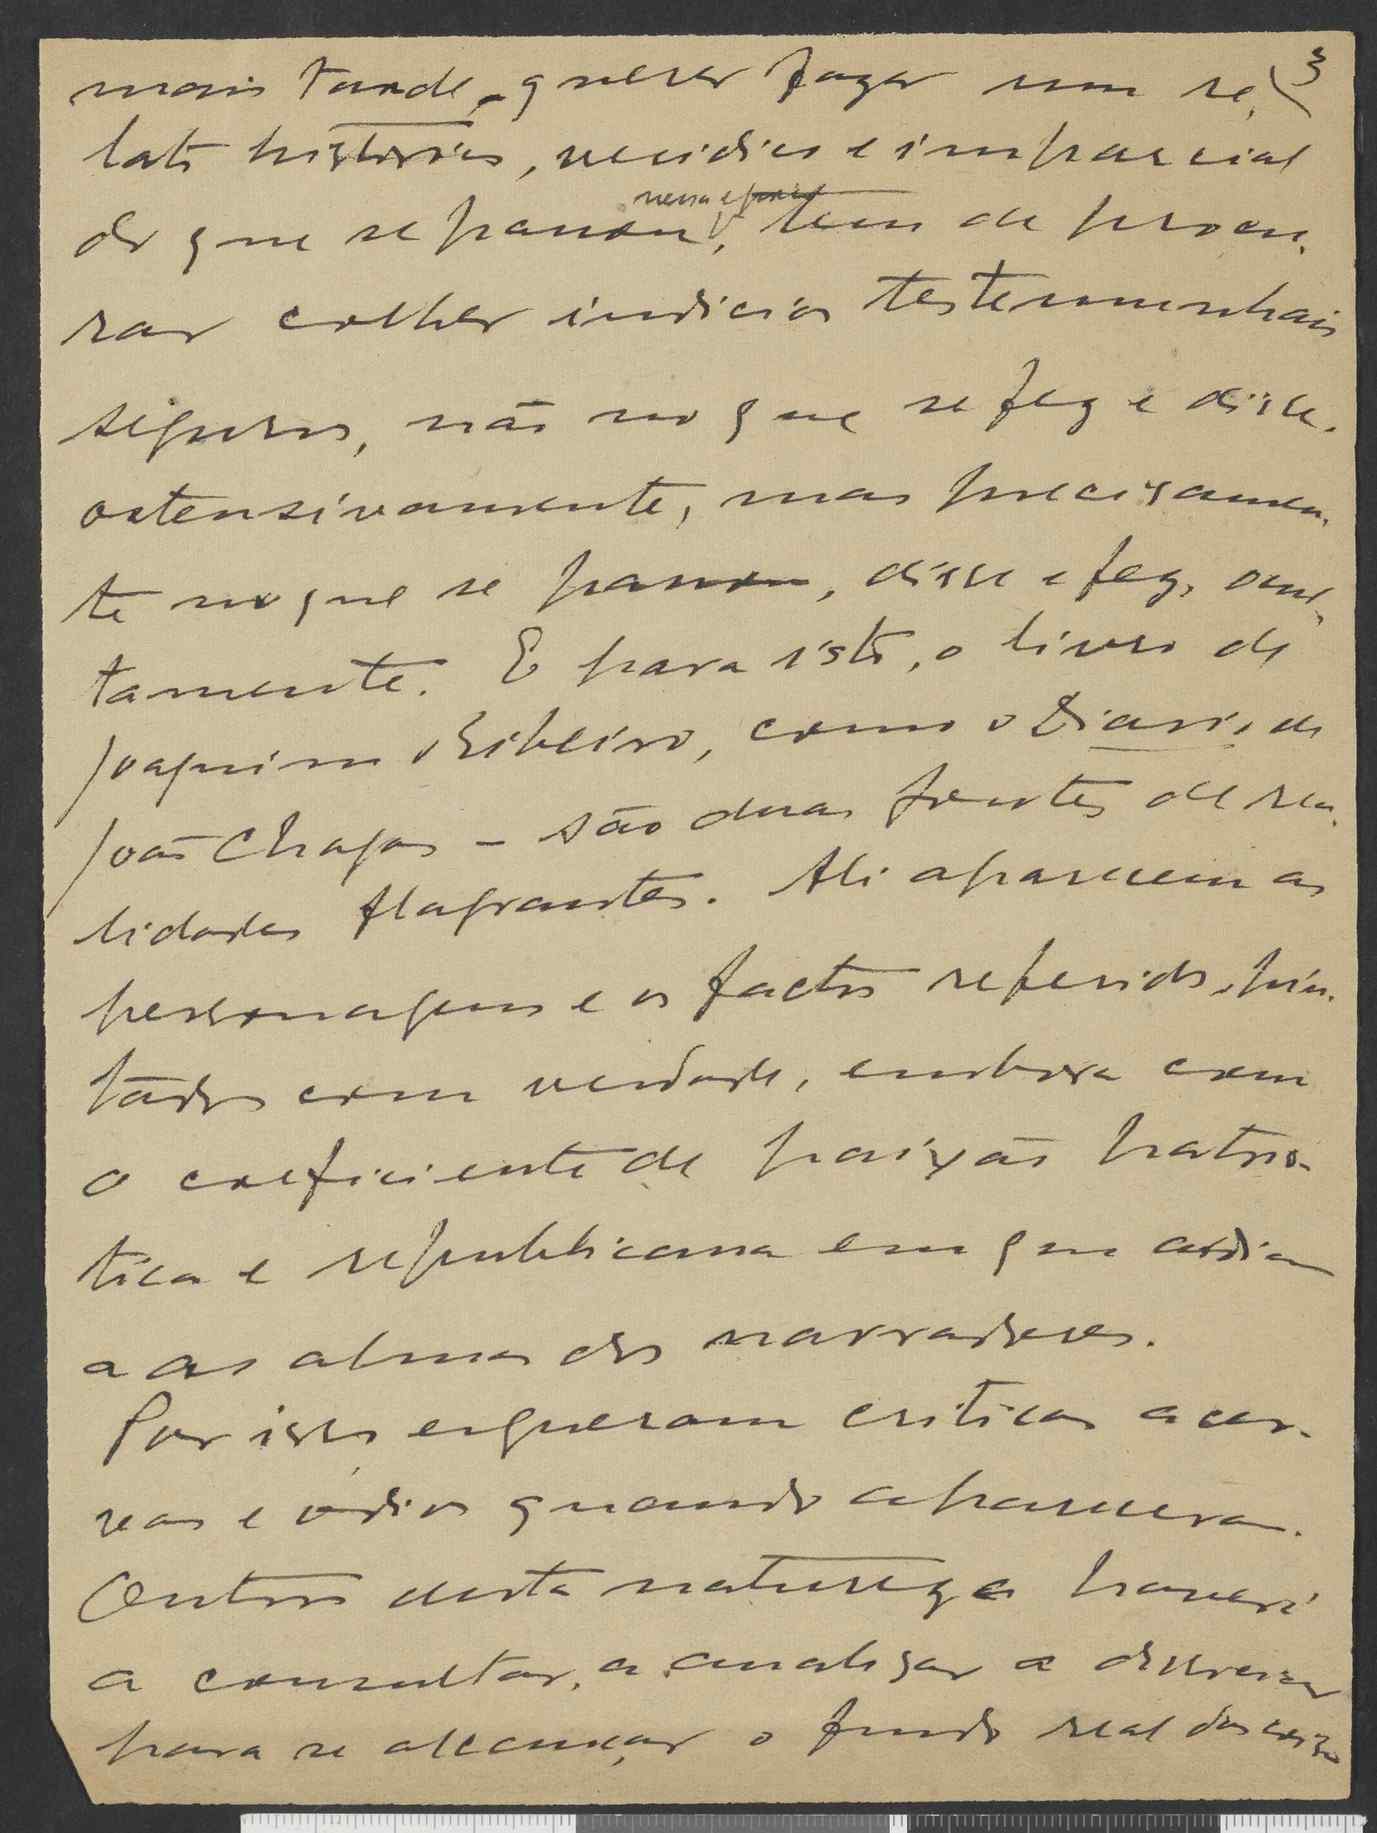 3
mais tarde, quizer fazer um re-
lato historico, veridico e imparcial
do que se passou nessa epoca, tem de procu-
rar colher indicios testemunhais
seguros, não no que se fez e disse
ostensivamente, mas precisamen-
te no que se passou, disse e fez, ocul-
tamente. E para isto, o livro de
Joaquim Ribeiro, como o Diario de
João Chagas – são duas fontes de rea-
lidades flagrantes. Ali aparecem as
personagens e os factos referidos, pin-
tados com verdade, embora com
o coeficiente de paixão patrio-
tica e republicana em que ardiam
as almas dos narradores.
Por isso ergueram criticas acer-
vas e ódios quando apareceram.
Outros desta natureza haverá
a consultar, a analizar e descrever
para se alcançar o fundo real das coisas